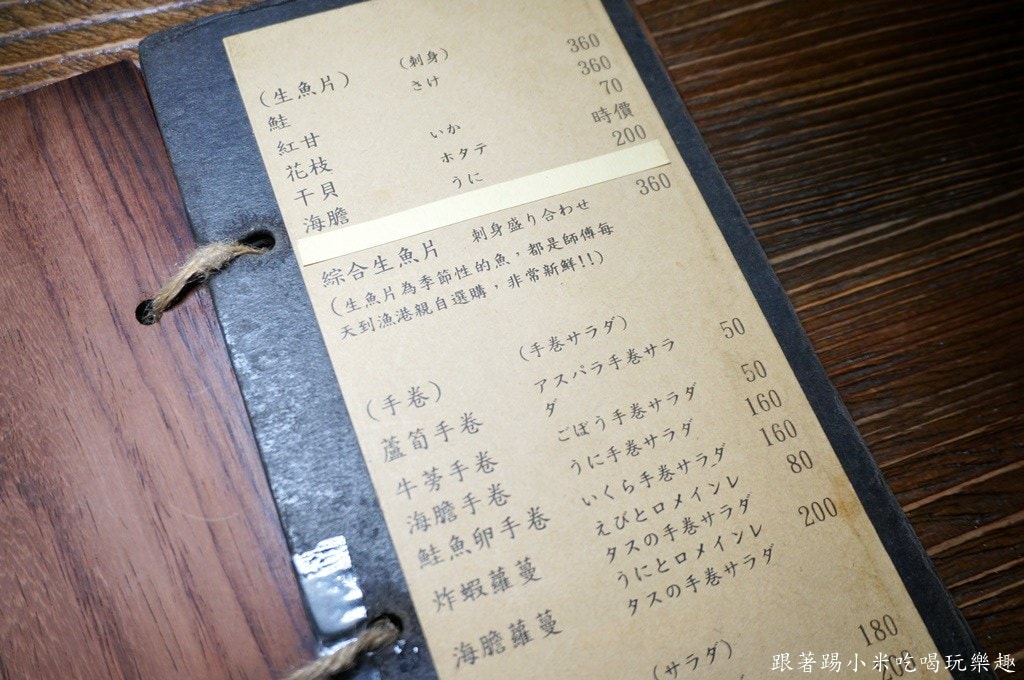 (生魚片) (刺身)
鮭 さけ 360
紅甘 360
花枝 いか 70
干貝 ホタテ 時價
海膽 うに 200
綜合生魚片 刺身盛り合わせ 360
(生魚片為季節性的魚，都是師傅每
天到漁港親自選購，非常新鮮!!)
(手卷) (手巻サラダ)
蘆筍手卷 アスパラ手巻サラ 50
ダ
牛蒡手卷 ごぼう手巻サラダ 50
海膽手卷 うに手巻サラダ 160
鮭魚卵手卷 いくら手巻サラダ 160
炸蝦蘿蔓 えびとロメインレ 80
タスの手巻サラダ
海膽蘿蔓 うにとロメインレ 200
タスの手巻サラダ
(サラダ)
180
跟著踢小米吃喝玩樂趣